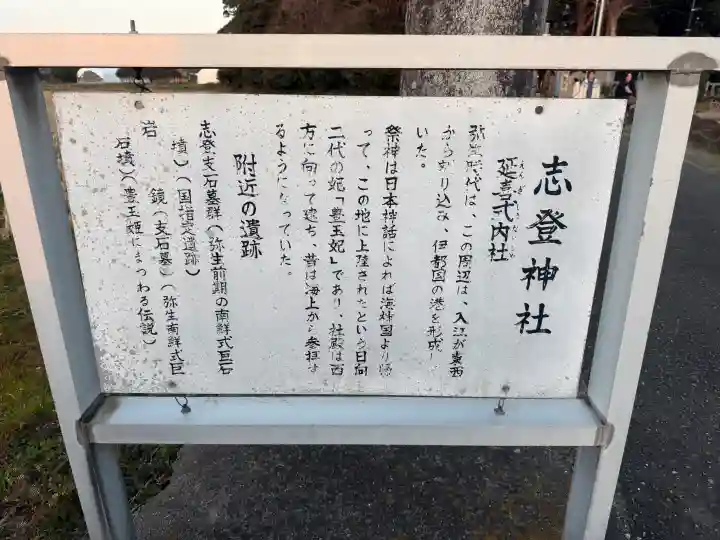 志登神社
延喜式内社
えんぎしきないしゃ
弥生時代は、この周辺は、入江が東西
から切り込み、伊都国の港を形成し
いた。
祭神は日本神話によれば海神国より帰
って、この地に上陸されたという日向
二代の妃「豊玉妃」であり、社殿は西
方に向って建ち、昔は海上から参拝す
るようになっていた。
附近の遺跡
志登支石墓群(弥生前期の南鮮式巨石
墳)(国指定遺跡)
岩鏡(支石墓)(弥生南鮮式巨
石墳)(豊玉姫にまつわる伝説)